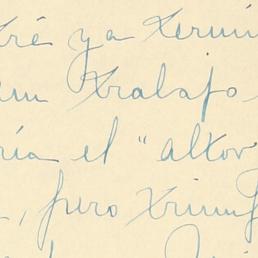 tré ya termi
um trabajo
ría el "altov
, pero triunf